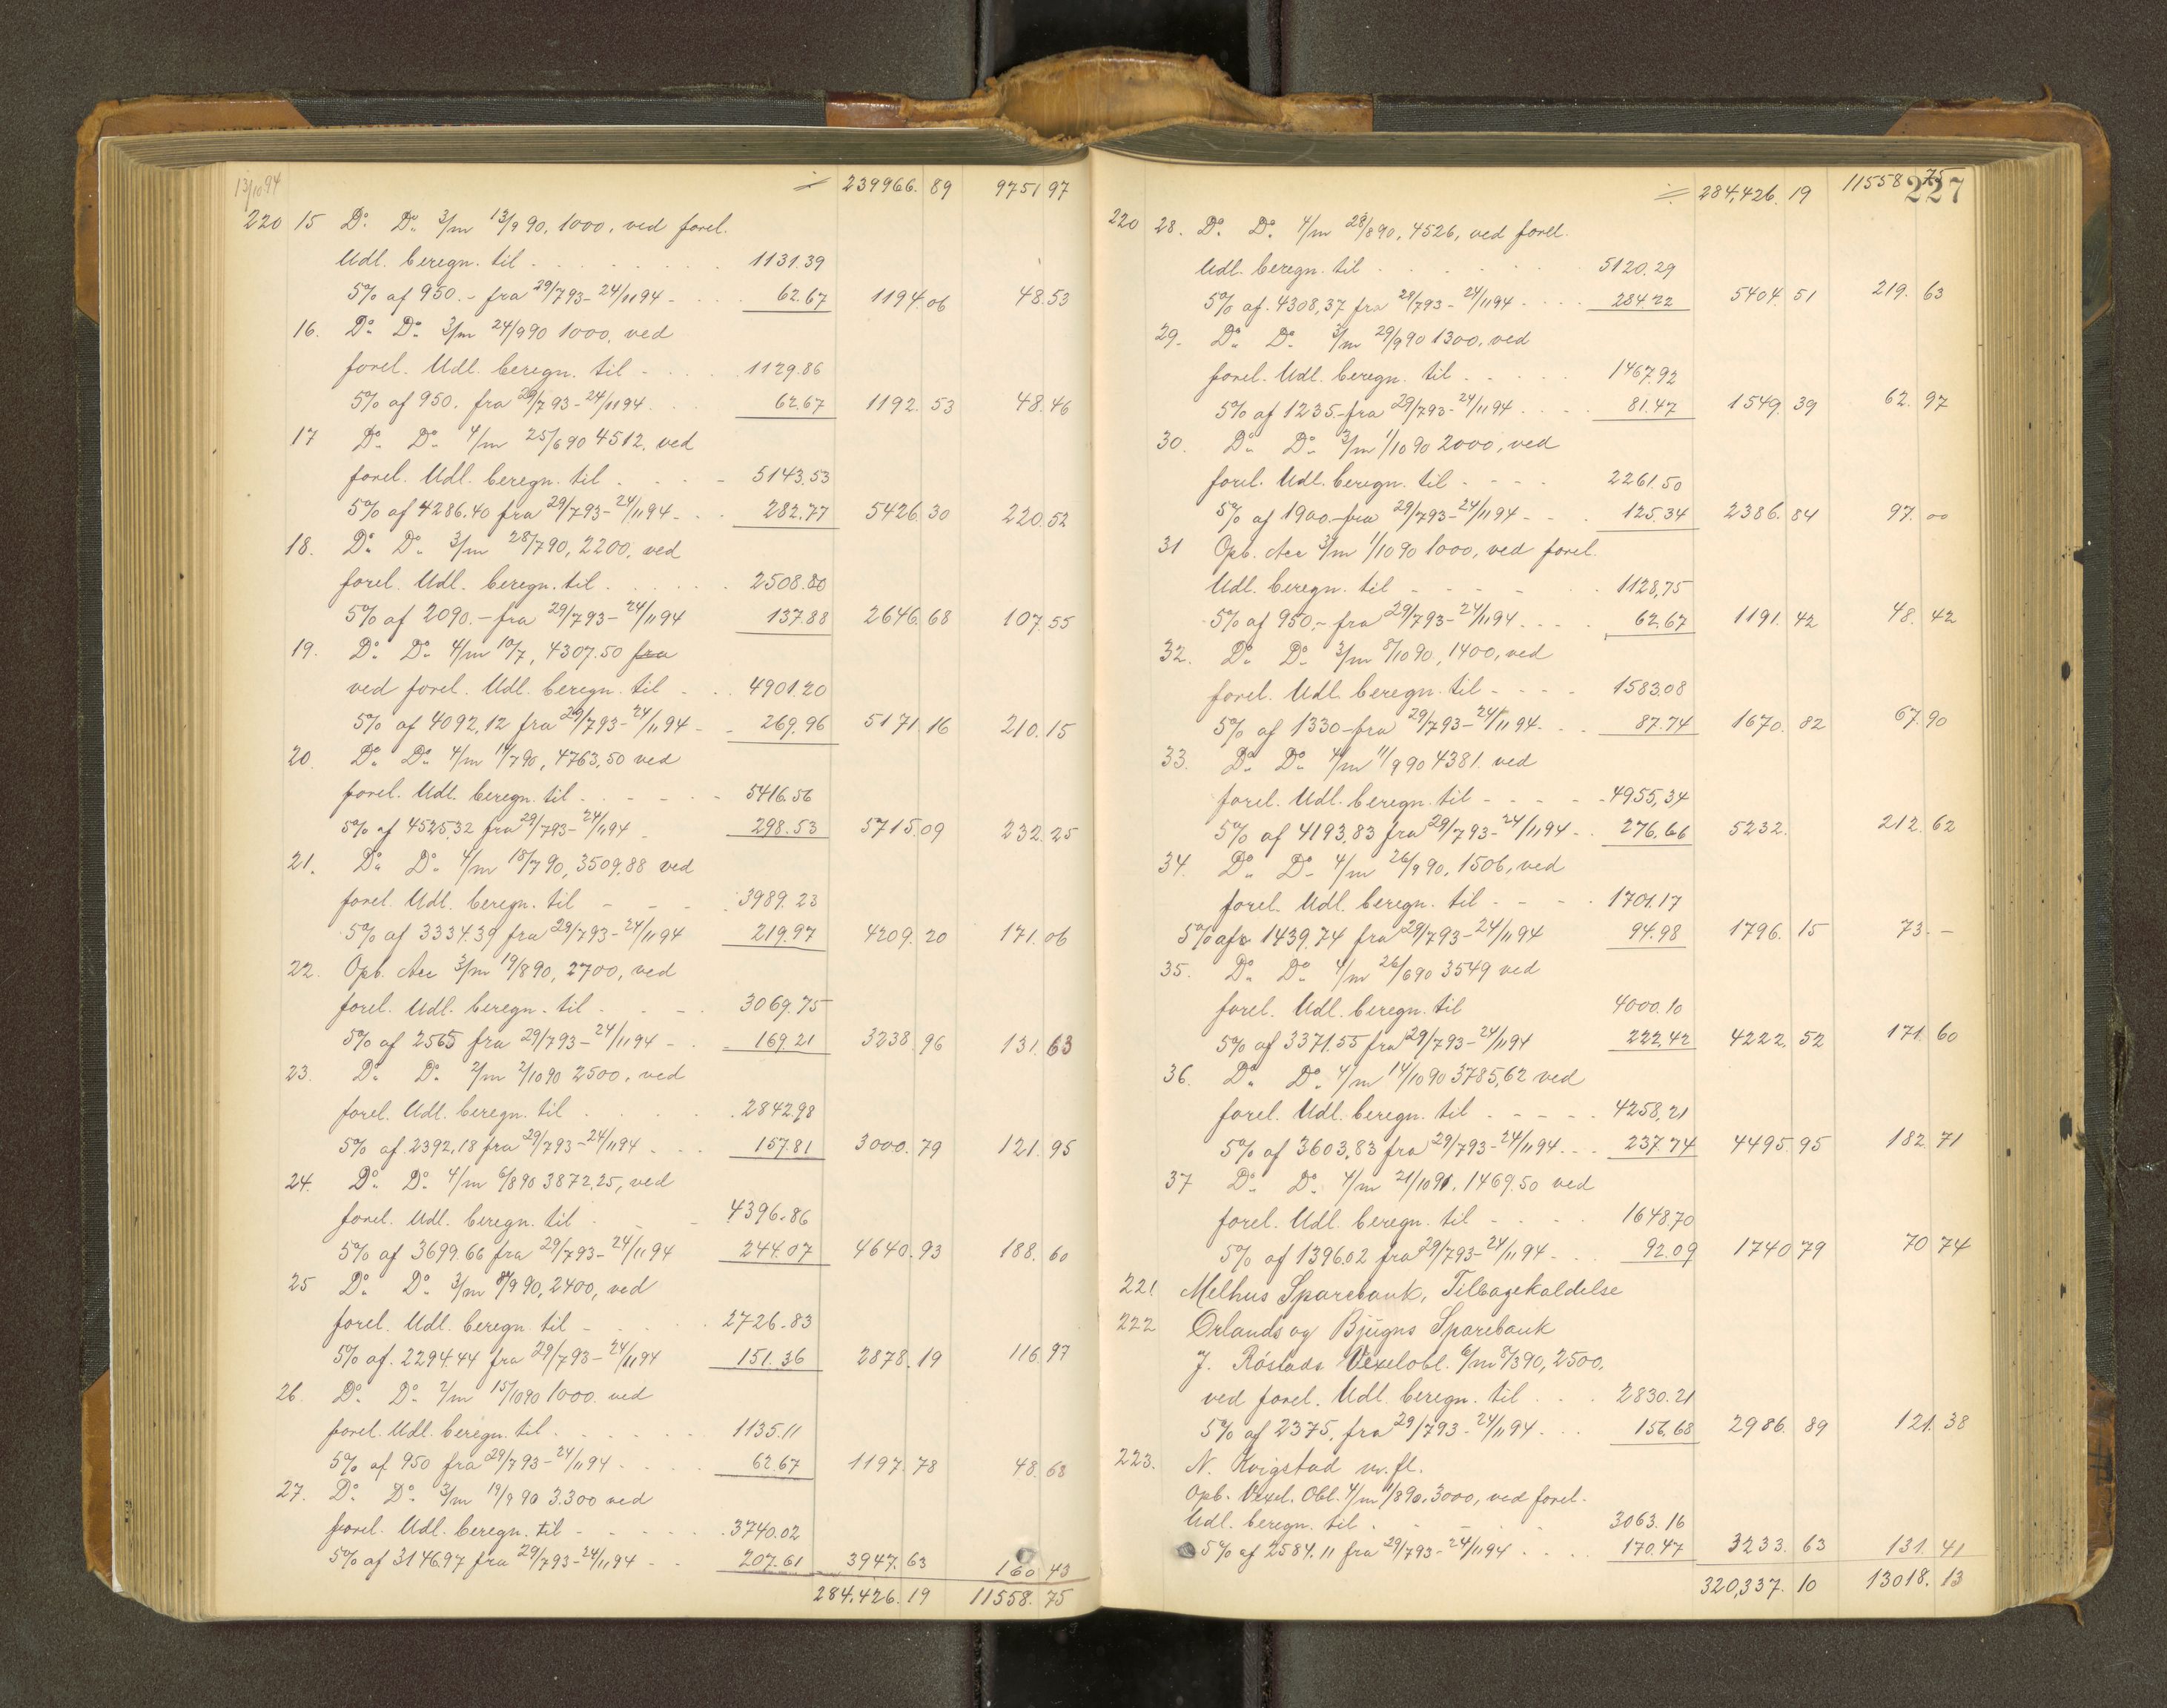 13/10 94
÷ 239966. 89 9751 97
220 15 Do Do 3/m 13/9 90. 1000, ved forel.
Udl. beregn. til . . . . . . . 1131.39
5% af 950.- fra 29/7 93 - 24/11 94 - . . . 62.67 1194.06 48.53
16. Do Do 3/m 24/9 90 1000, ved
forel. Udl. beregn. til - . . . 1129.86
5% af 950. fra 29/7 93 - 24/11 94 . . . 62.67 1192.53 48.46
17 Do Do 4/m 25/6 90 4512, ved
forel. Udl. beregn. til . . . - 5143.53
5% af 4286.40 fra 29/7 93 - 24/11 94 - . . 282.77 5426 30 220.52
18. Do Do 3/m 28/7 90, 2200, ved
forel. Udl. beregn. til . . . . . 2508.80
5% af 2090.- fra 29/7 93 - 24/11 94 137.88 2646.68 107.55
19. Do Do 4/m 10/7, 4307.50 fra
ved forel. Udl. beregn. til - . . 4901.20
5% af 4092,12 fra 29/7 93 - 24/11 94 - - 269.96 5171.16 210.15
20. Do Do 4/m 14/7 90, 4763,50 ved
forel. Udl. beregn. til . - - - - - 5416.56
5% af 4525,32 fra 29/7 93 - 24/11 94 - 298.53 5715.09 232.25
21. Do Do 4/m 15/7 90, 3509,88 ved
forel. Udl. beregn. til - - - . 3989.23
5% af 3334.39 fra 29/7 93 - 24/11 94 219.97 4209.20 171.06
22. Opb. Acc 3/m 19/8 90, 2700, ved
forel. Udl. beregn. til . . - - 3069.75
5% af 2565 fra 29/7 93 - 24/11 94 - . - 169.21 3238.96 131.63
23. Do Do 2/m 2/10 90 2500, ved
forel. Udl. beregn. til . . . . . 2842.98
5% af 2392,18 fra 29/7 93 - 24/11 94 . . . 157.81 3000.79 121.95
24. Do Do 4/m 6/8 90 3872,25, ved
forel. Udl. beregn. til . - - 4396.86
5% af 3699.66 fra 29/7 93 - 24/11 94 244.07 4640.93 188.60
25 Do Do 3/m 8/9 90, 2400, ved
forel. Udl. beregn. til - . . . . 2726.83
5% af 2294.44 fra 29/7 93 - 24/11 94 151.36 2878.19 116.97
26. Do Do 2/m 15/10 90 1000. ved
forel. Udl. beregn. til . . . . . . 1135.11
5% af 950 fra 29/7 93 - 24/11 94 - . . . 62.67 1197.78 48.68
27. Do Do 3/m 19/9 90 3.300 ved
forel. Udl. beregn. til - . - . . . 3740.02
5% af 3146.97 fra 29/7 93 - 24/11 94 - - 207.61 3947.63 160 43
284.426.19 11558.75
227
÷ 284,426. 19 11558 75
220 28. Do Do 4/m 28/8 90. 4526, ved forel.
Udl. beregn. til . . . . . 5120.29
5% af 4308,37 fra 29/7 93 - 24/11 94 . . . . 284.22 5404.51 219.63
29. Do Do 3/m 29/9 90 1300, ved
forel. Udl. beregn. til . . . . . 1467.92
5% af 1235.- fra 29/7 93 - 24/11 94 . . . . 81.47 1549.39 62.97
30. Do Do 3/m 1/10 90 2000, ved
forel. Udl. beregn. til - - - - 2261.50
5% af 1900.- fra 29/7 93 - 24/11 94 - . . . 125.34 2386.84 97.00
31 Opb. Acc 3/m 1/10 90 1000, ved forel.
Udl. beregn. til - - - - . . 1128,75
5% af 950,- fra 29/7 93 - 24/11 94 . . . . 62.67 1191.42 48.42
32. Do Do 3/m 8/10 90, 1400, ved
forel. Udl. beregn. til - - - - 1583.08
5% af 1330 - fra 29/7 93 - 24/11 94 . . . 87.74 1670.82 67.90
33. Do Do 4/m 11/9 90 4381. ved
forel. Udl. beregn. til - - - - - 4955,34
5% af 4193,83 fra 29/7 93 - 24/11 94 - . 276.66 5232. 212.62
34. Do Do 4/m 26/9 90. 1506, ved
forel. Udl. beregn. til - - - . 1701.17
5% af 1439.74 fra 29/7 93 - 24/11 94 94.98 1796.15 73.-
35. Do Do 4/m 26/6 90 3549 ved
forel. Udl. beregn. til 4000.10
5% af 3371.55 fra 29/7 93 - 24/11 94 222,42 4222.52 171.60
36. Do Do 4/m 14/10 90 3785,62 ved
forel. Udl. beregn. til . - - - . 4258,21
5% af 3603,83 fra 29/7 93 - 24/11 94 . . . 237.74 4495.95 182.71
37 Do Do 4/m 21/10 91. 1469.50 ved
forel. Udl. beregn. til - . . . 1648,70
5% af 1396.02 fra 29/7 93 - 24/11 94 - . . 92.09 1740 79 70 74
221 Melhus Sparebank, Tilbagekaldelse
222 Ørlands og Bjugns Sparebank
J. Röstads Vexelobl. 6/m 8/3 90, 2500,
ved forel. Udl. beregn. til . . . 2830.21
5% af 2375, fra 29/7 93 - 24/11 94 . . . 156,68 2986.89 121.38
223. N. Kvigstad m. fl.
Opb. Vexel. Obl. 4/m 1/8 90. 3000, ved forel.
Udl. beregn. til . - - - - 3063.16
5% af 2584.11 fra 29/7 93 - 24/11 94 . . . . 170.47 3233.63 131.41
320,337.10 13018.13